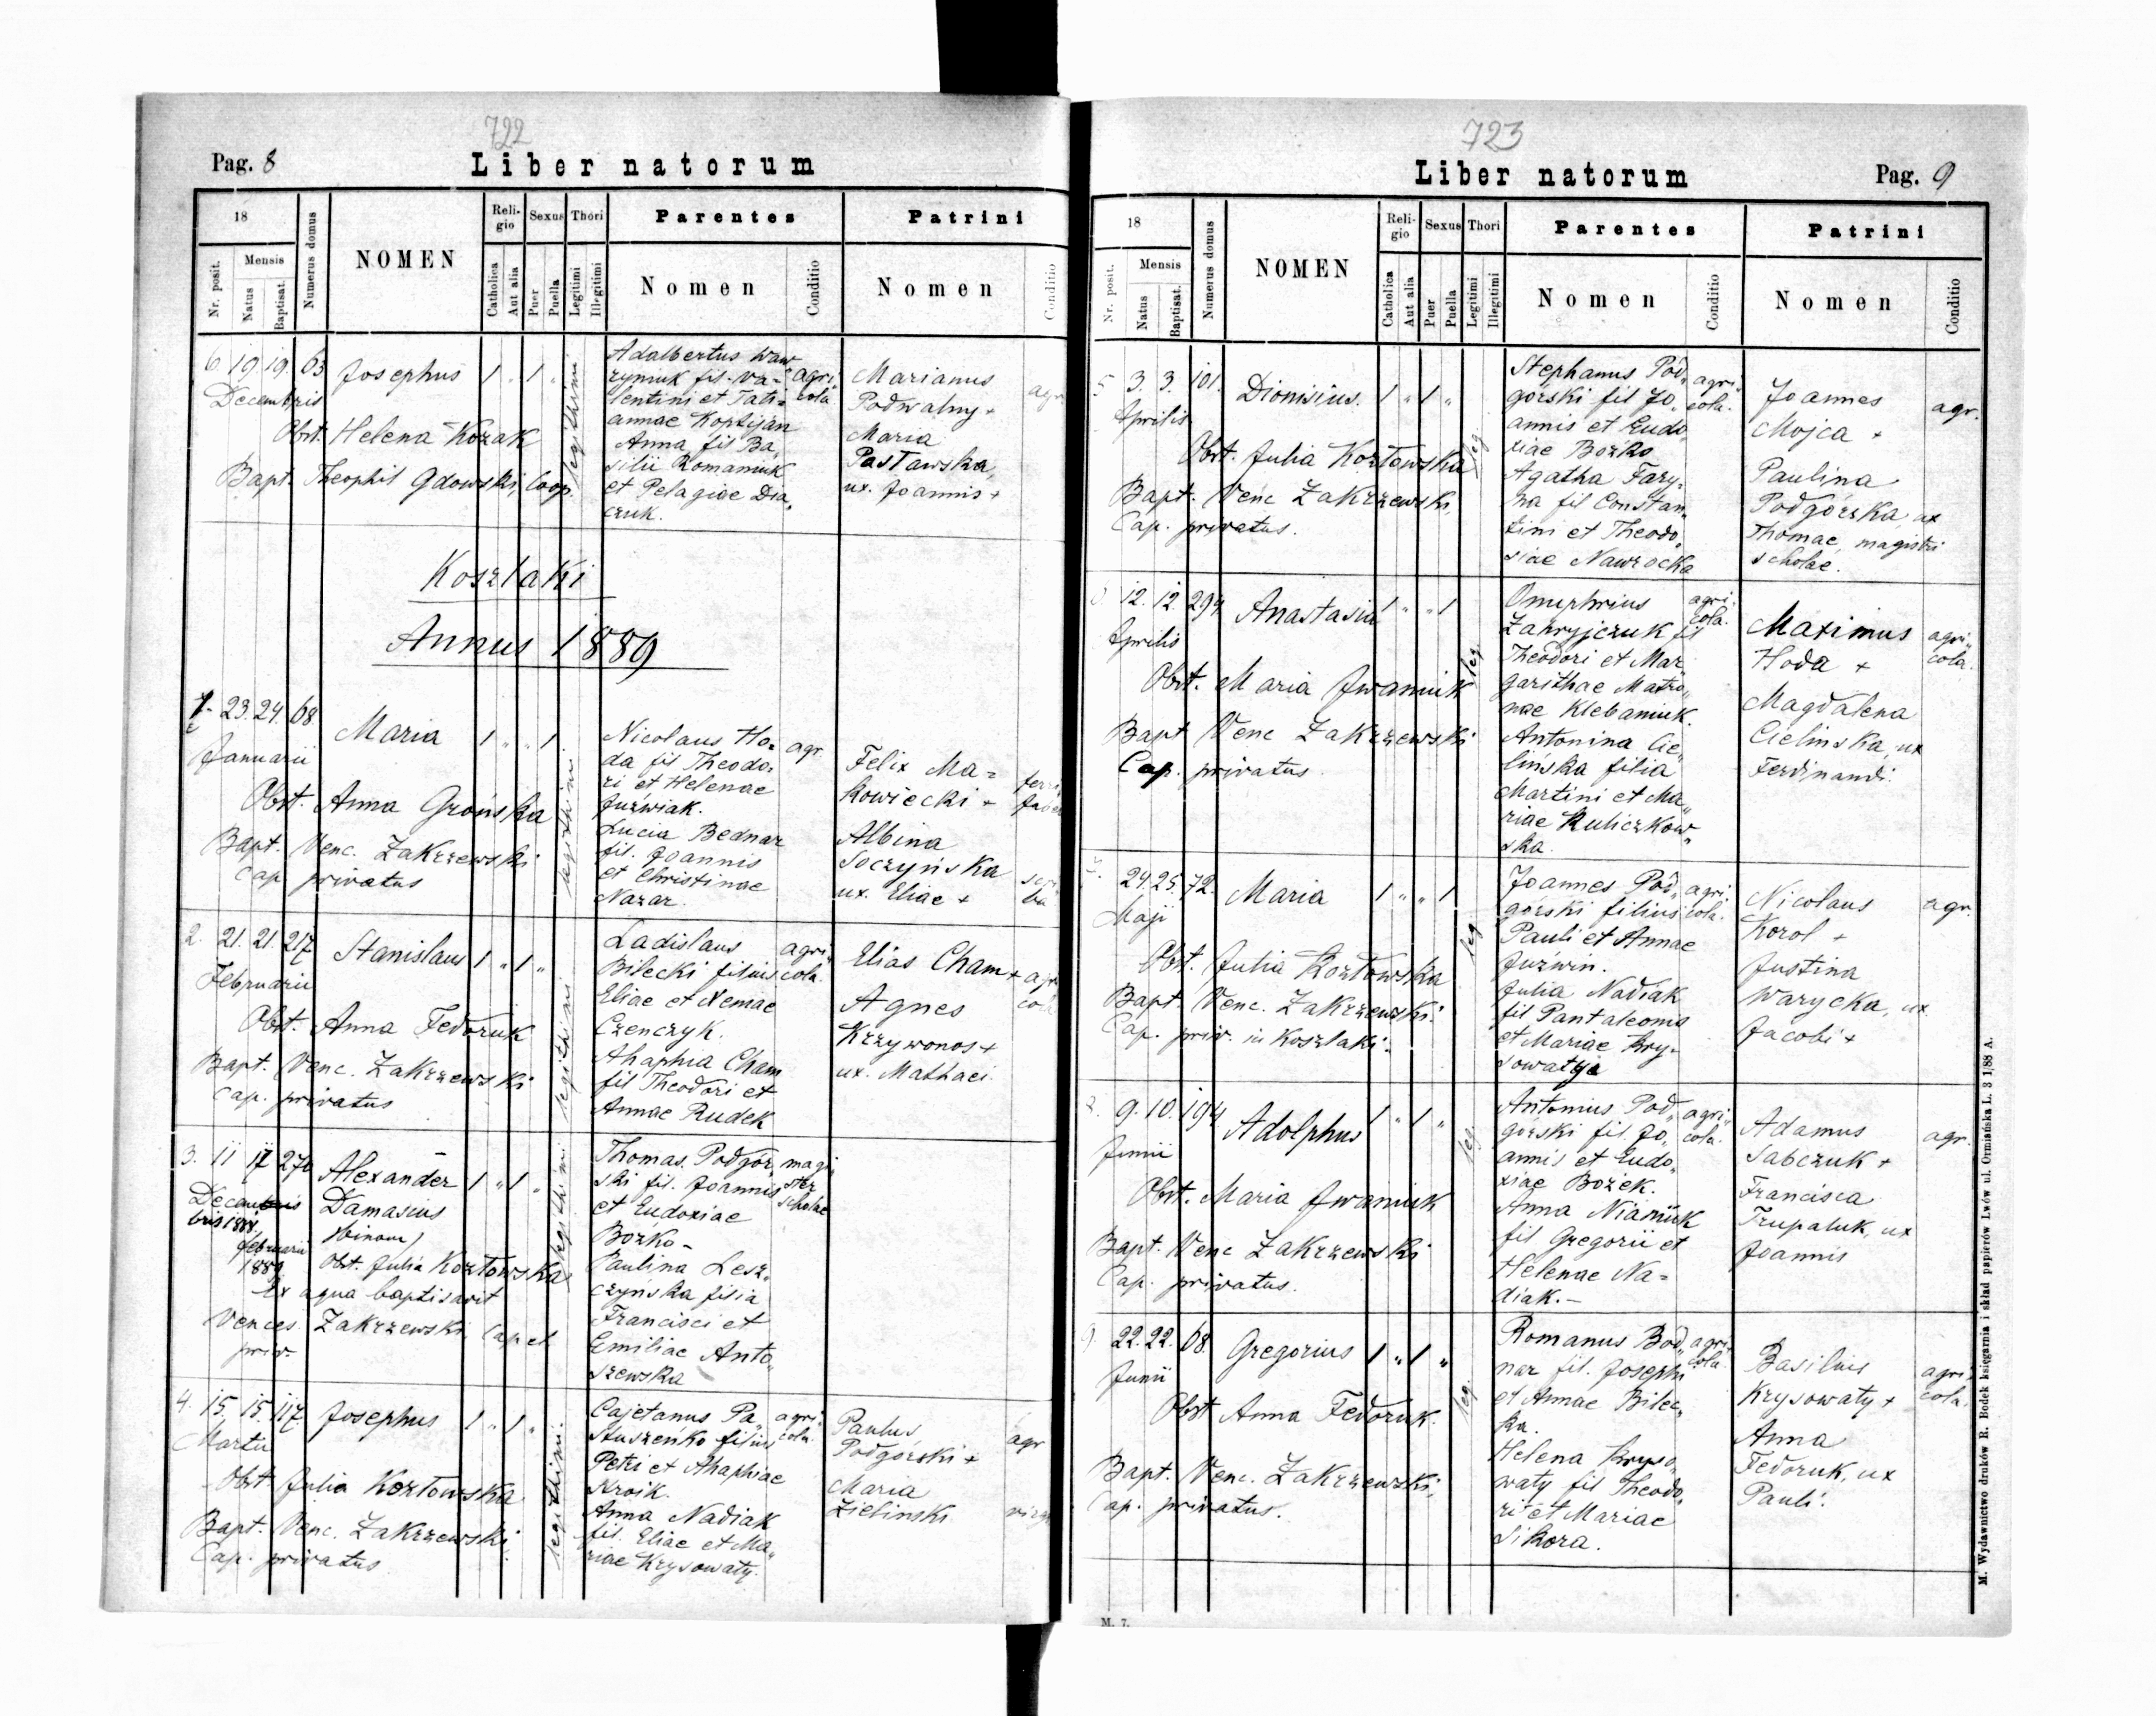 722
Pag. 8
Liber natorum
18
Nr. posit.
Mensis
Natus
Baptisat.
Numerus domus
NOMEN
Religio
Catholica
Aut alia
Sexus
Puer
Puella
Thori
Legitimi
Illegitimi
Parentes
Nomen
Conditio
Patrini
Nomen
Conditio
6 19. 19. 63 Josephus 1 „ 1 „
Decembris
Obst. Helena Kozak
Bapt. Theophil Gdowski, Coop.
legithimi
Adalbertus Waw
ryniuk fil. Va=
lentini et Tati=
annae Koptijan
Anna fil Ba„
silii Romaniuk
et Pelagiae Dia„
czuk.
agri„
cola
Marianus
Podwalny +
Maria
Pastawska,
ux. Joannis +
agr
Koszlaki
Annus 1889
1. 23. 24. 68 Maria 1 „ „ 1
Januarii
Obst. Anna Grońska
Bapt. Venc. Zakrzewski
Cap privatus
legithimi
Nicolaus Ho=
da fil Theodo=
ri et Helenae
Juźwiak.
Lucia Bednar
fil. Joannis
et Christinae
Nazar.
agr
Felix Ma=
kowiecki +
Albina
Soczyńska
ux. Eliae +
2. 21. 21. 217 Stanislaus 1 „ 1 „
Februarii
Obst. Anna Fedoruk
Bapt. Venc. Zakrzewski
Cap. privatus
legithimi
Ladislaus
Bilecki filius
Eliae et Xeniae
Czenczyk.
Ahaphia Cham
fil Theodori et
Annae Rudek
agri„
cola.
Elias Cham +
Agnes
Krzywonos +
ux. Mathaei
3. 11 17 270 Alexander 1 „ 1 „
Decem
bris 1888.
Damasius
(binom)
februarii
1889
Obst. Julia Kozłowska
Ex aqua baptisavit
Vences. Zakrzewski, Cap et
priv.
legithimi
Thomas Podgór„
ski fil. Joannis
et Eudoxiae
Bożko -
Paulina Lesz„
czyńska filia
Francisci et
Emiliae Anto„
szewska
magi
ster
scholae
4. 15. 15. 117. Josephus 1 „ 1 „
Martii
Obst. Julia Kozłowska
Bapt. Venc. Zakrzewski
Cap. privatus
legithimi
Cajetanus Pa„
stuszeńko filius
Petri et Ahaphiae
Kroik.
Anna Nadiak
fil. Eliae et Ma„
riae Krysowaty.
agri„
cola.
Paulus
Podgórski +
Maria
Zielinski
agr
723
Liber natorum
Pag. 9
18
Nr. posit.
Mensis
Natus
Baptisat.
Numerus domus
NOMEN
Religio
Catholica
Aut alia
Sexus
Puer
Puella
Thori
Legitimi
Illegitimi
Parentes
Nomen
Conditio
Patrini
Nomen
Conditio
5 3. 3. 101. Dionisius. 1 „ 1 „
Aprilis
Obst. Julia Kozłowska
Bapt. Venc Zakrzewski,
Cap. privatus.
leg.
Stephanus Pod„
górski fil Jo„
annis et Eudo„
xiae Bożko
Agatha Fary„
na fil Constan„
tini et Theodo„
siae Nawrocka
agri„
cola.
Joannes
Mojca +
Paulina
Podgórska, ux
Thomae, magistri
scholae.
agr.
12. 12. 294. Anastasia 1 „ „ 1
Aprilis
Obst. Maria Iwaniuk
Bapt Venc Zakrzewski
Cap. privatus
leg.
Onuphrius
Zahryjczuk fil
Theodori et Mar„
garithae Matro„
nae Klebaniuk.
Antonina Cie„
linska filia
Martini et Ma„
riae Kuliczkow„
ska.
agri„
cola.
Maximus
Hoda +
Magdalena
Cielinska, ux
Ferdinandi.
agri„
cola.
24. 25. 72. Maria 1 „ „ 1
Maji
Obst. Julia Kozłowska
Bapt. Venc. Zakrzewski.
Cap. priv. in Koszlaki.
leg.
Joannes Pod„
górski filius
Pauli et Annae
Juźwin.
Julia Nadiak
fil Pantaleonis
et Mariae Kry-
sowatya
agri
cola.
Nicolaus
Korol +
Justina
Warycka, ux
Jacobi +
agr.
9. 10. 194 Adolphus 1 „ 1 „
Junii
Obst. Maria Iwaniuk
Bapt. Venc Zakrzewski
Cap. privatus.
leg.
Antonius Pod„
górski fil. Jo„
annis et Eudo„
xiae Bożek.
Anna Niańiuk
fil Gregorii et
Helenae Na=
diak. -
agri„
cola.
Adamus
Sabczuk +
Francisca
Trupaluk, ux
Joannis
agr.
22. 22. 68. Gregorius 1 „ 1 „
Junii
Obst Anna Fedoruk.
Bapt. Venc. Zakrzewski,
Cap. privatus.
leg.
Romanus Bod„
nar fil. Josephi
et Annae Bilec„
ka.
Helena Kryso„
waty fil Theodo„
ri et Mariae
Sikora.
agri„
cola.
Basilius
Krysowaty +
Anna
Fedoruk, ux
Pauli.
agri„
cola.
M. 7.
M. Wydawnictwo druków R. Bodek księgarnia i skład papierów Lwów ul. Ormiańska L. 3 1/88 A.